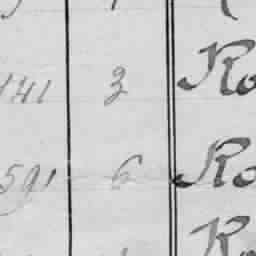 141 3 Ro
591 6 Ro